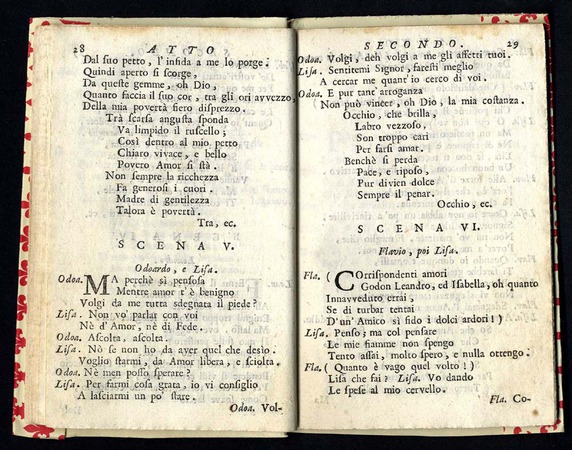 28
ATTO
Dal suo petto, l'insida a me lo porge.
Quindi aperto si scorge,
Da queste gemme, oh Dio,
Quanto faccia il suo cor, tra gli ori avvezzo,
Della mia povertà fiero disprezzo.
Trà scarsa angusta sponda
Va limpido il ruscello;
Così dentro al mio petto
Chiaro vivace, e bello
Povero Amor si stà.
Non sempre la ricchezza
Fa generosi i cuori.
Madre di gentilezza
Talora è povertà.
Tra, ec.
SCENA V.
Odoardo, e Lisa.
Odoa. MA perchè sì pensosa
Mentre amor t'è benigno
Volgi da me tutta sdegnata il piede?
Lisa. Non vo' parlar con voi
Nè d'Amor, nè di Fede.
Odoa. Ascolta, ascolta.
Lisa. Nò se non ho da aver quel che desio.
Voglio starmi, da Amor libera, e sciolta.
Odoa. Nè men posso sperare?
Lisa. Per farmi cosa grata, io vi consiglio
A lasciarmi un po' stare.
Odoa. Vol-
SECONDO.
29
Odoa. Volgi, deh volgi a me gli affetti tuoi.
Lisa. Sentitemi Signor, faresti meglio
A cercar me quant'io cerco di voi.
Odoa. E pur tant'arroganza
(Non può vincer, oh Dio, la mia costanza.
Occhio, che brilla,
Labro vezzoso,
Son troppo cari
Per farsi amar.
Benchè si perda
Pace, e riposo,
Pur divien dolce
Sempre il penar.
Occhio, ec.
SCENA VI.
Flavio, poi Lisa.
Fla. ( COrrispondenti amori
Godon Leandro, ed Isabella, oh quanto
Innavveduto errai,
Se di turbar tentai
D'un'Amico sì fido i dolci ardori!)
Lisa. Penso; ma col pensare
Le mie fiamme non spengo
Tento assai, molto spero, e nulla ottengo.
Fla. ( Quanto è vago quel volto!)
Lisa che fai? Lisa. Vo dando
Le spese al mio cervello.
Fla. Co-